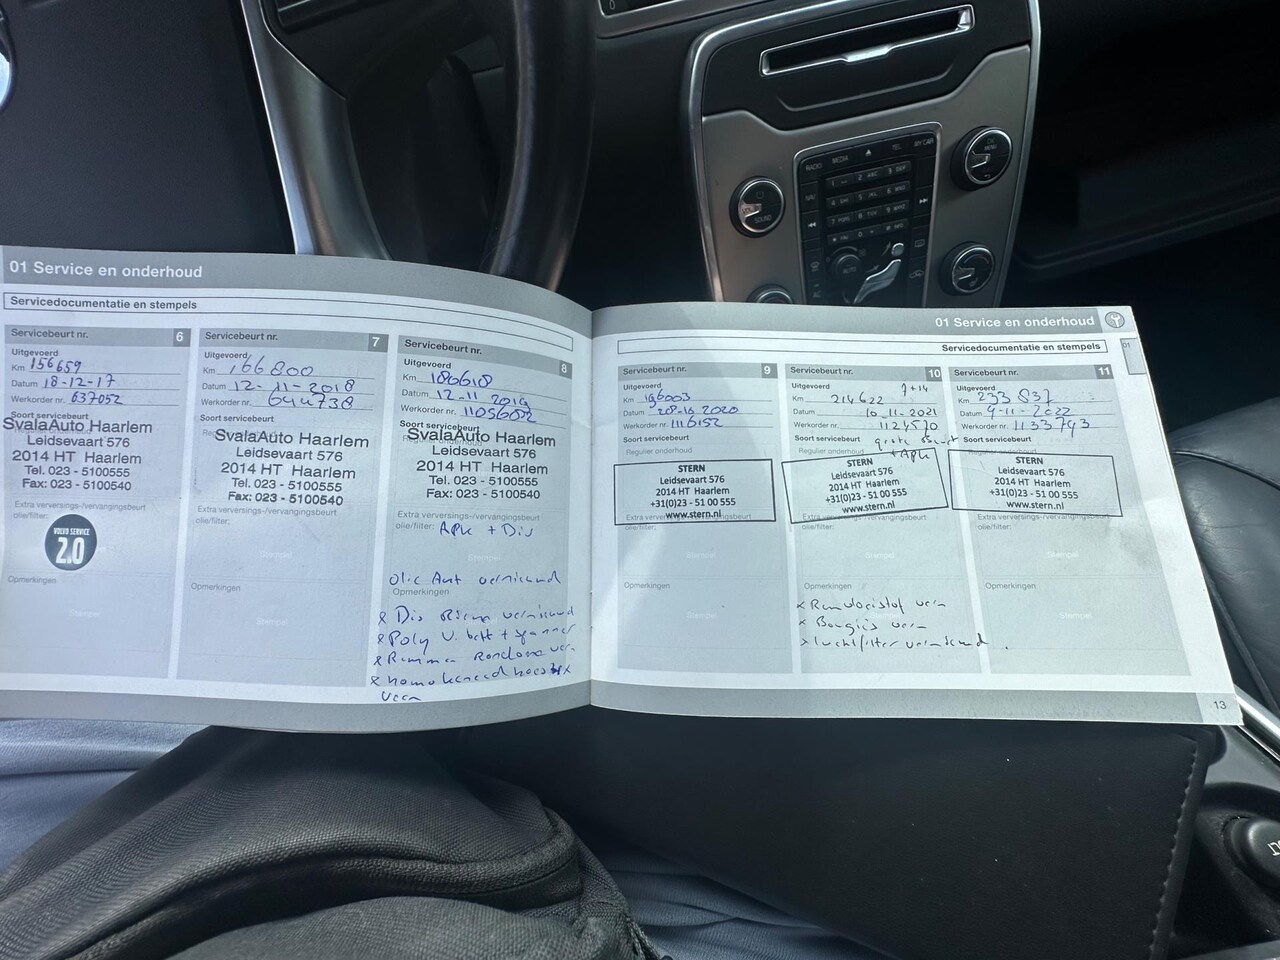 RADIO MEDIA TEL MY CAR
SOUND
AUTO
01 Service en onderhoud
Servicedocumentatie en stempels
Servicebeurt nr. 6
Uitgevoerd
Km 156659
Datum 18-12-17
Werkorder nr. 637052
Soort servicebeurt
SvalaAuto Haarlem
Leidsevaart 576
2014 HT Haarlem
Tel. 023 - 5100555
Fax: 023 - 5100540
Extra verversings-/vervangingsbeurt
olie/filter:
VOLVO SERVICE
2.0
Opmerkingen
Stempel
Servicebeurt nr. 7
Uitgevoerd
Km 166800
Datum 12-11-2018
Werkorder nr. 644738
Soort servicebeurt
SvalaAuto Haarlem
Leidsevaart 576
2014 HT Haarlem
Tel. 023 - 5100555
Fax: 023 - 5100540
Extra verversings-/vervangingsbeurt
olie/filter:
Stempel
Opmerkingen
Stempel
Servicebeurt nr. 8
Uitgevoerd
Km 180618
Datum 12-11-2019
Werkorder nr. 11056052
Soort servicebeurt
SvalaAuto Haarlem
Leidsevaart 576
2014 HT Haarlem
Tel. 023 - 5100555
Fax: 023 - 5100540
Extra verversings-/vervangingsbeurt
olie/filter:
APK + Dis
Stempel
olie Aut vernieuwd
Opmerkingen
x Dis Riem vernieuwd
x Poly V. belt + spanner
x Remmen Rondom ver.
x
veen
01 Service en onderhoud
Servicedocumentatie en stempels
01
Servicebeurt nr. 9
Uitgevoerd
Km 196003
Datum 28-10 2020
Werkorder nr. 1116152
Soort servicebeurt
Regulier onderhoud
STERN
Leidsevaart 576
2014 HT Haarlem
+31(0)23 - 51 00 555
www.stern.nl
Extra verversings-/vervangingsbeurt
olie/filter:
Stempel
Opmerkingen
Servicebeurt nr. 10
Uitgevoerd 7+14
Km 214622
Datum 10-11-2021
Werkorder nr. 1124570
Soort servicebeurt grote beurt
Regulier onderhoud + APK
STERN
Leidsevaart 576
2014 HT Haarlem
+31(0)23 - 51 00 555
www.stern.nl
Extra verversings-/vervangingsbeurt
olie/filter:
Stempel
Opmerkingen
x Remvloeistof vern
x Bougies vern
x luchtfilter vernieuwd.
Servicebeurt nr. 11
Uitgevoerd
Km 233 837
Datum 9-11-2022
Werkorder nr. 1133793
Soort servicebeurt
Regulier onderhoud
STERN
Leidsevaart 576
2014 HT Haarlem
+31(0)23 - 51 00 555
www.stern.nl
Extra verversings-/vervangingsbeurt
olie/filter:
Stempel
Opmerkingen
13